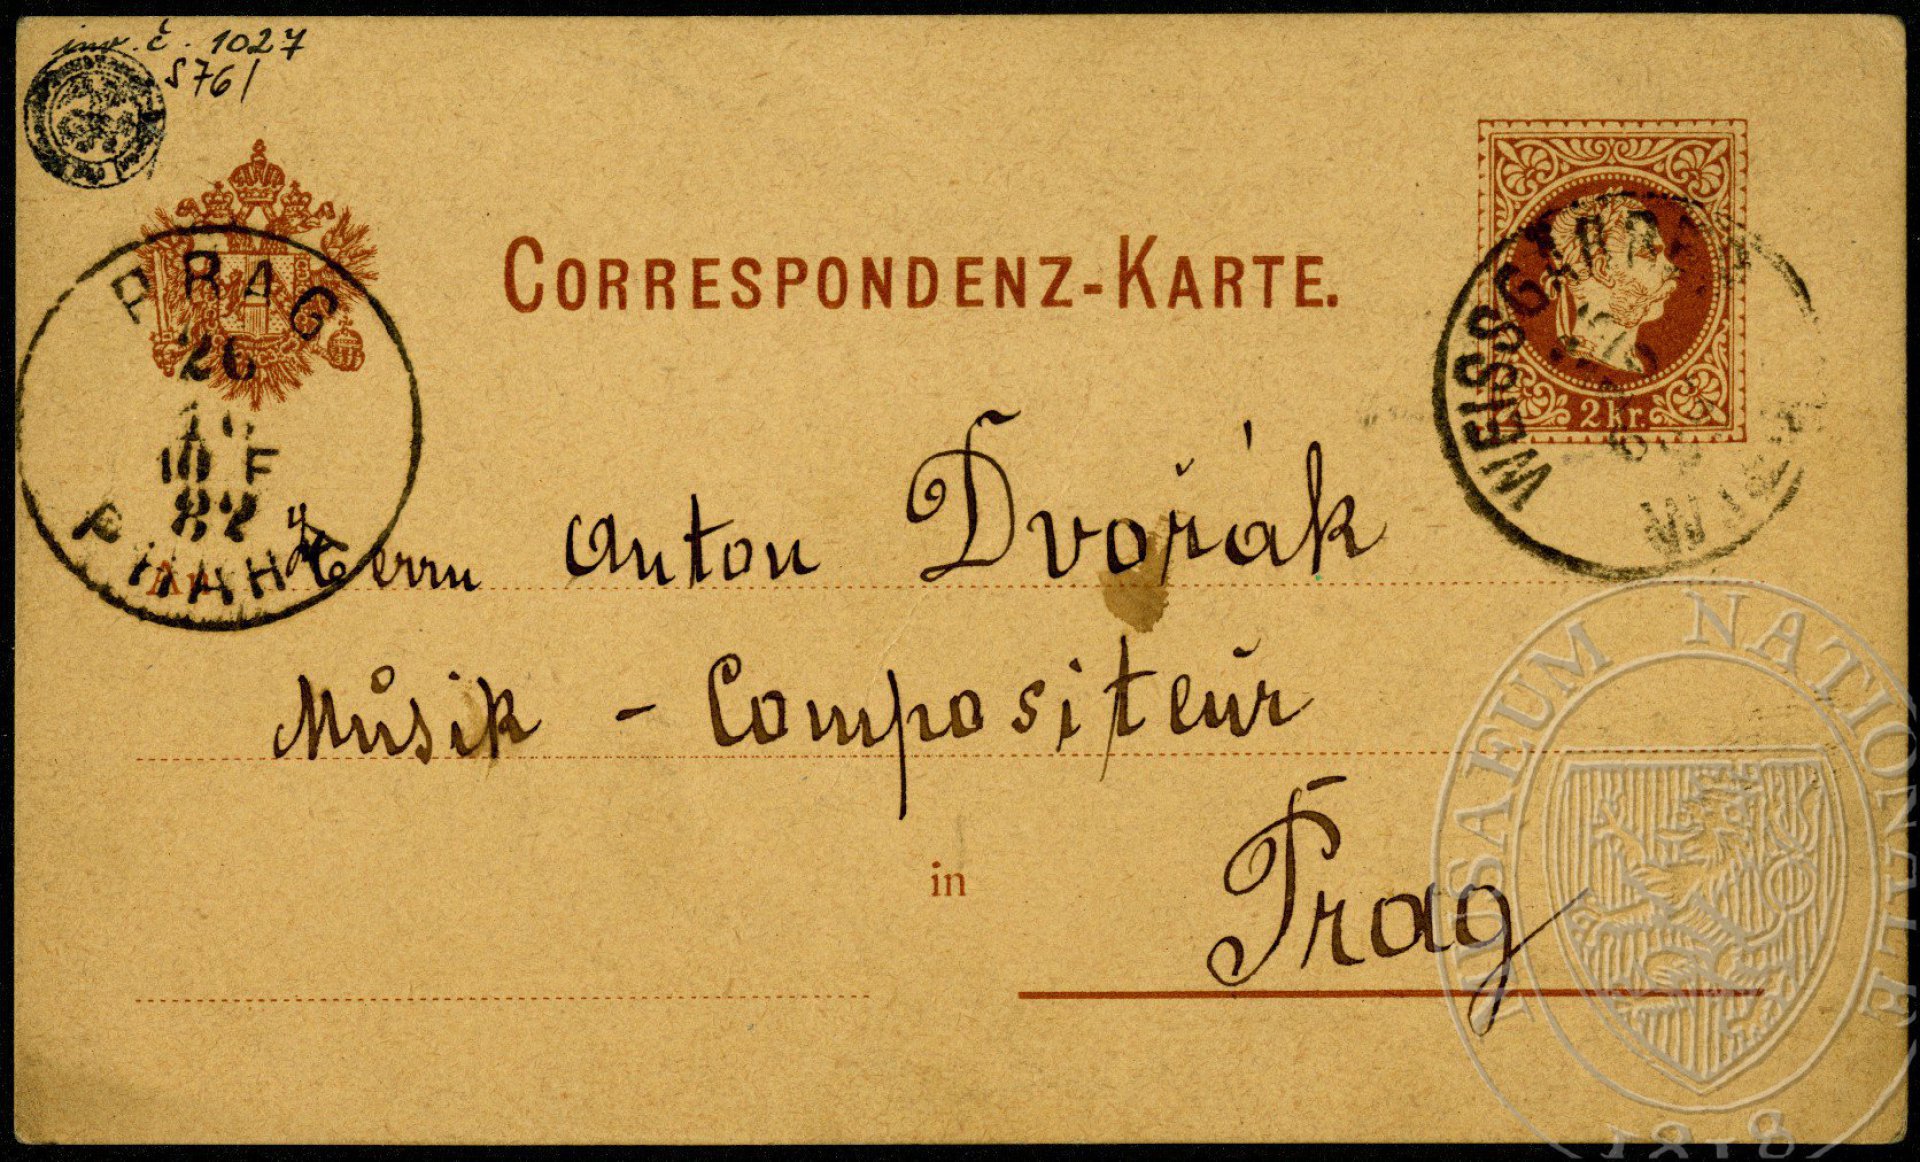 inv. č. 1027
S 76/
CORRESPONDENZ-KARTE.
2 kr.
PRAG
26
10 F
82
PRAHA
WEISSGÄRBER
WIEN
An Herrn Anton Dvořák
Musik - Compositeur
in Prag
MUSAEUM NATIONALE
1818